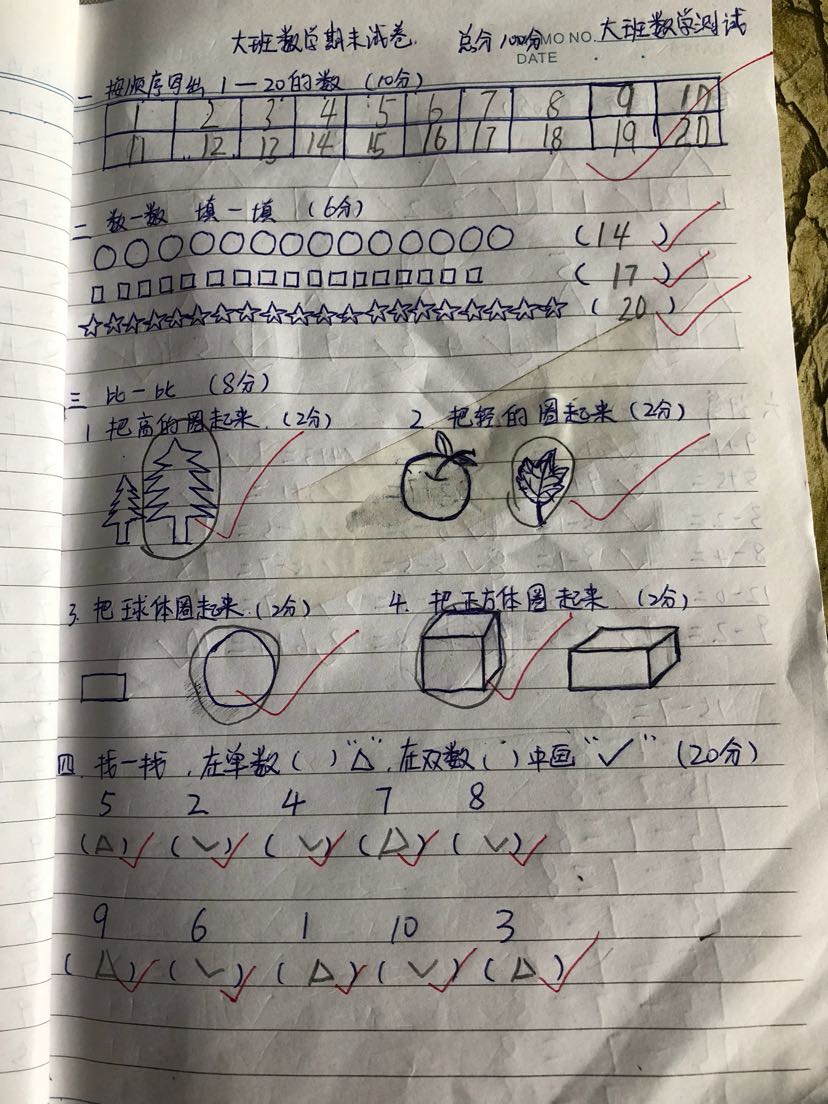 大班数学期末试卷. 总分100分 MO NO. 大班数学测试
DATE
一 按顺序写出1—20的数(10分)
1 2 3 4 5 6 7 8 9 10
11 12 13 14 15 16 17 18 19 20
二 数一数 填一填 (6分)
(14)
(17)
(20)
三 比一比 (8分)
1 把高的圈起来.(2分) 2 把轻的圈起来(2分)
3. 把球体圈起来.(2分) 4. 把正方体圈起来 (2分)
四. 找一找,在单数( )"△",在双数( )中画"✓" (20分)
5 2 4 7 8
(△) (✓) (✓) (△) (✓)
9 6 1 10 3
(△) (✓) (△) (✓) (△)